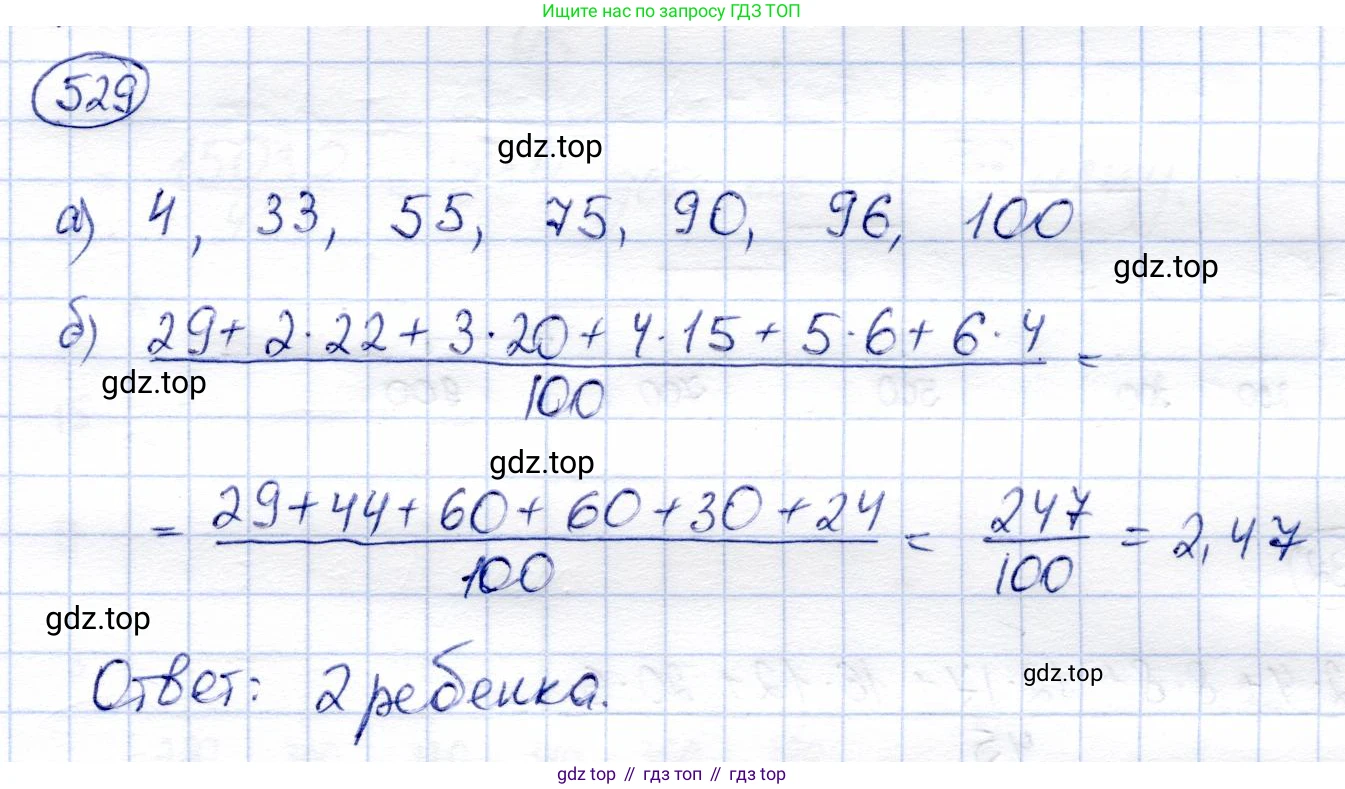 Ищите нас по запросу ГДЗ ТОП
529
gdz.top
а) 4, 33, 55, 75, 90, 96, 100
gdz.top
б) 29 + 2·22 + 3·20 + 4·15 + 5·6 + 6·4 =
gdz.top
100
gdz.top
= 29+44+60+60+30+24 = 247 = 2,47
100 100
gdz.top
gdz.top
Ответ: 2 ребенка.
gdz top // гдз топ // гдз top